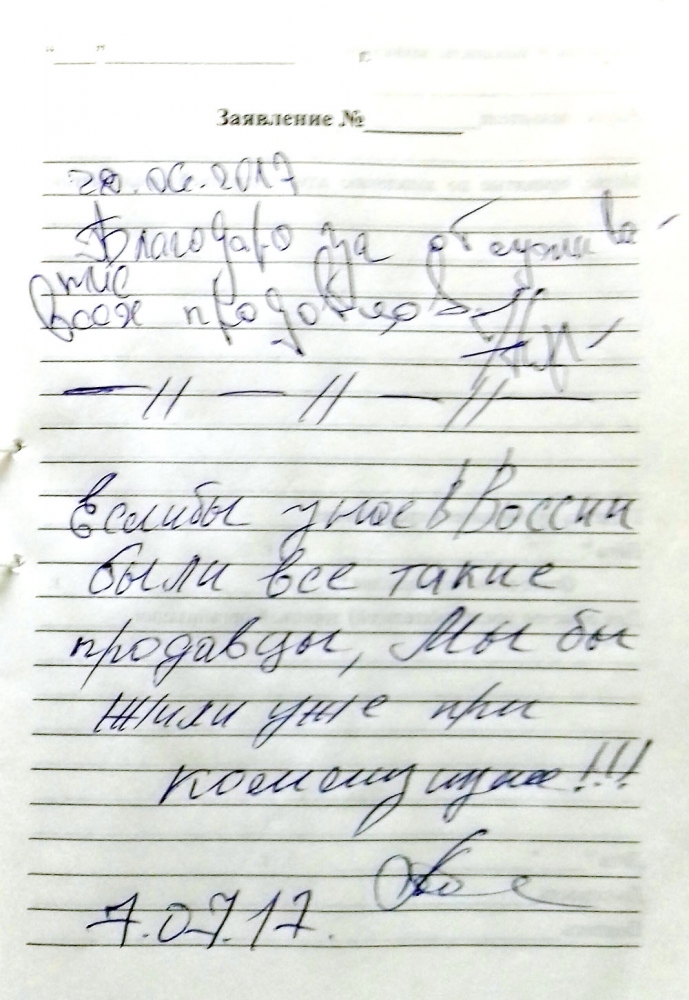 Заявление №
28.06.2017
Благодаро за обслужива
ние
всех продовцов
Еслибы унас в России
были все такие
продавцы, Мы бы
Жили уже при
коммунизме!!!
7.07.17.